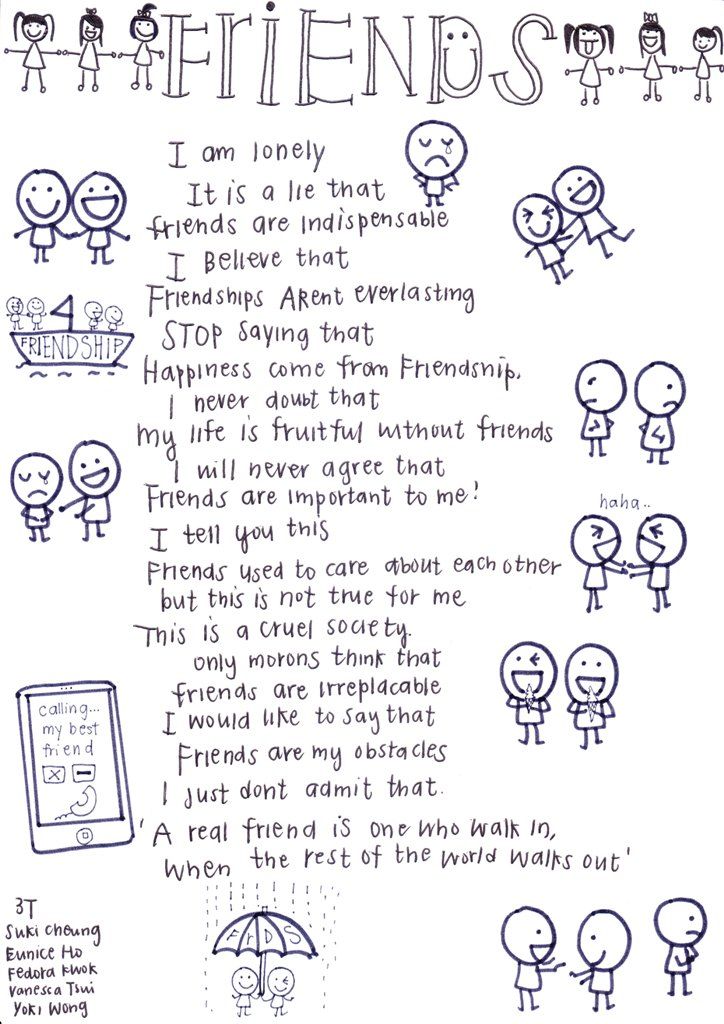 FRIENDS
I am lonely
It is a lie that
friends are indispensable
I Believe that
Friendships ARENt everlasting
STOP saying that
Happiness come from Friendship.
I never doubt that
my life is fruitful without friends
I will never agree that
Friends are important to me!
I tell you this
Friends used to care about each other
but this is not true for me
This is a cruel society.
only morons think that
friends are irreplacable
I would like to say that
Friends are my obstacles
I just dont admit that.
'A real friend is one who walk in,
when the rest of the world walks out'
FRIENDSHIP
haha..
calling...
my best
friend
3T
Suki Cheung
Eunice Ho
Fedora Kwok
Vanesca Tsui
Yoki Wong
FrDS